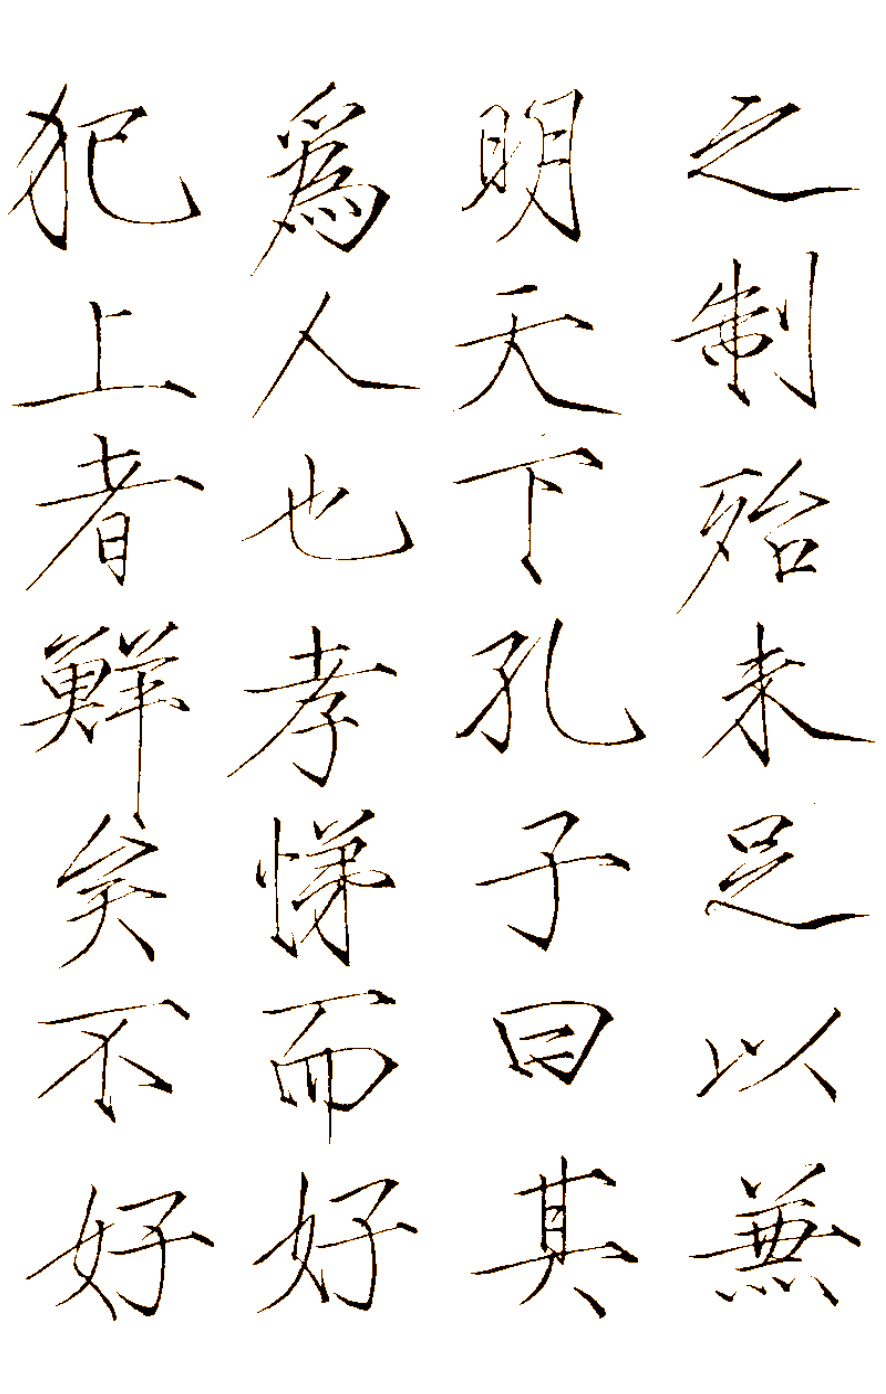 之制殆未足以兼
明天下孔子曰其
爲人也孝悌而好
犯上者鮮矣不好